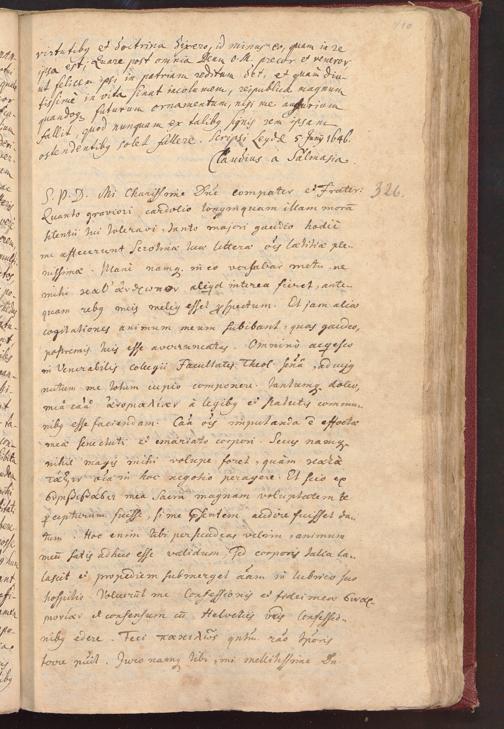 virtutibus et doctrina dixero, id minus eo, quam in re
ipsa est, Quare post omnia Deum O. M. precor et veneror
ut felicem ipsi in patriam reditum det, et quam diu-
tissime in vita sinat incolumem, reipublicæ magnum
quandoq futurum ornamentum, nisi me augurium
fallit, quod nunquam ex talibus signis rem ipsam
ostendentibus solet fallere. Scripsi Leydæ 5 1646.
Claudius a Salmasia.
S. P. D. Mi Charissime Dne compater et Frater: 326.
Quanto graviori cardolio longumquam illam moram
silentii tui toleravi, tanto majori gaudio hodie
me affecerunt Serotinæ tuæ litteræ ois lætitiæ ple-
nissimæ. Mani namq in eo versabar metu, ne
mihi ἀνθρωπον aliqd interea fieret, ante-
quam rebus meis melius esset pspectum. Et jam alio
cogitationes animum meum subibant, quas gaudeo,
postremis tuis esse averruncatas. Omnino acquiesco
in Venerabilis collegii Facultatis Theol. ad cujq
nutum me totum cupio componere. Tantumq doleo,
meâ caâ a legibus et statutis commu-
nibus esse faciendam. Caa ois imputanda e effoetæ
meæ senectuti et emaciato corpori. Secus namq
nihil magis mihi volupe foret, quam κατὰ
ταξιν oîa in hoc negotio peragere. Et scio ex
mea Sacra magnam voluptatem te
percepturum fuisse, si me psentem audire fuisset da-
tum. Hoc enim tibi persuadeas velim, animum
meu satis adhuc esse validum, sed corporis
et propediem submerget aîam in lubrico suo
hospitio. Voluerut me Confessionis et fidei meæ
et consensum cu Helvetiis vris Confessio-
nibus edere. Feci qntu rao tporis
ferre puit. Juro namq tibi, mi mellitissime Dn